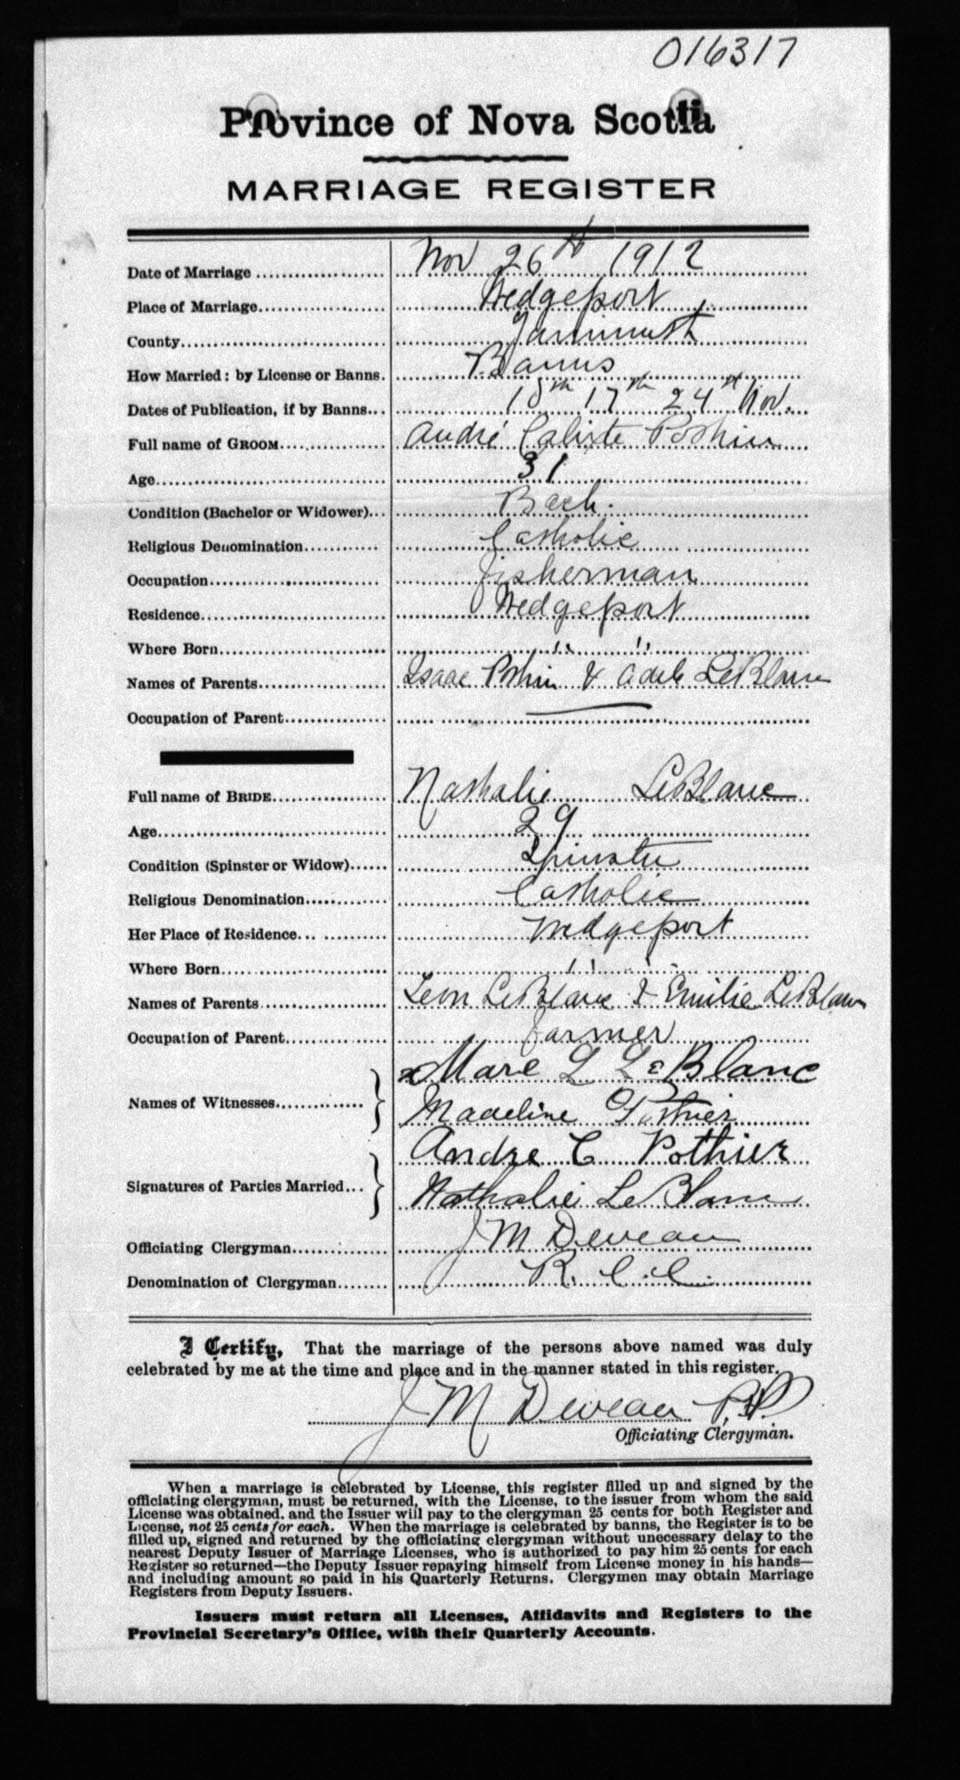 016317
Province of Nova Scotia
MARRIAGE REGISTER
Date of Marriage Nov 26th 1912
Place of Marriage Wedgeport
County Yarmouth
How Married: by License or Banns. Banns
Dates of Publication, if by Banns 10th 17th 24th Nov.
Full name of GROOM André Calixte Pothier
Age 31
Condition (Bachelor or Widower) Bach.
Religious Denomination Catholic
Occupation Fisherman
Residence Wedgeport
Where Born " "
Names of Parents Isaac Pothier & Adele LeBlanc
Occupation of Parent
Full name of BRIDE Nathalie LeBlanc
Age 29
Condition (Spinster or Widow) Spinster
Religious Denomination Catholic
Her Place of Residence Wedgeport
Where Born " "
Names of Parents Leon LeBlanc & Emilie LeBlanc
Occupation of Parent farmer
Names of Witnesses Marc L LeBlanc
Madeline Pothier
Signatures of Parties Married Andre C Pothier
Nathalie LeBlanc
Officiating Clergyman J M Deveau
Denomination of Clergyman R. C. C.
I Certify, That the marriage of the persons above named was duly
celebrated by me at the time and place and in the manner stated in this register.
J M Deveau P.P.
Officiating Clergyman.
When a marriage is celebrated by License, this register filled up and signed by the
officiating clergyman, must be returned, with the License, to the issuer from whom the said
License was obtained, and the Issuer will pay to the clergyman 25 cents for both Register and
License, not 25 cents for each. When the marriage is celebrated by banns, the Register is to be
filled up, signed and returned by the officiating clergyman without unnecessary delay to the
nearest Deputy Issuer of Marriage Licenses, who is authorized to pay him 25 cents for each
Register so returned—the Deputy Issuer repaying himself from License money in his hands—
and including amount so paid in his Quarterly Returns. Clergymen may obtain Marriage
Registers from Deputy Issuers.
Issuers must return all Licenses, Affidavits and Registers to the
Provincial Secretary's Office, with their Quarterly Accounts.